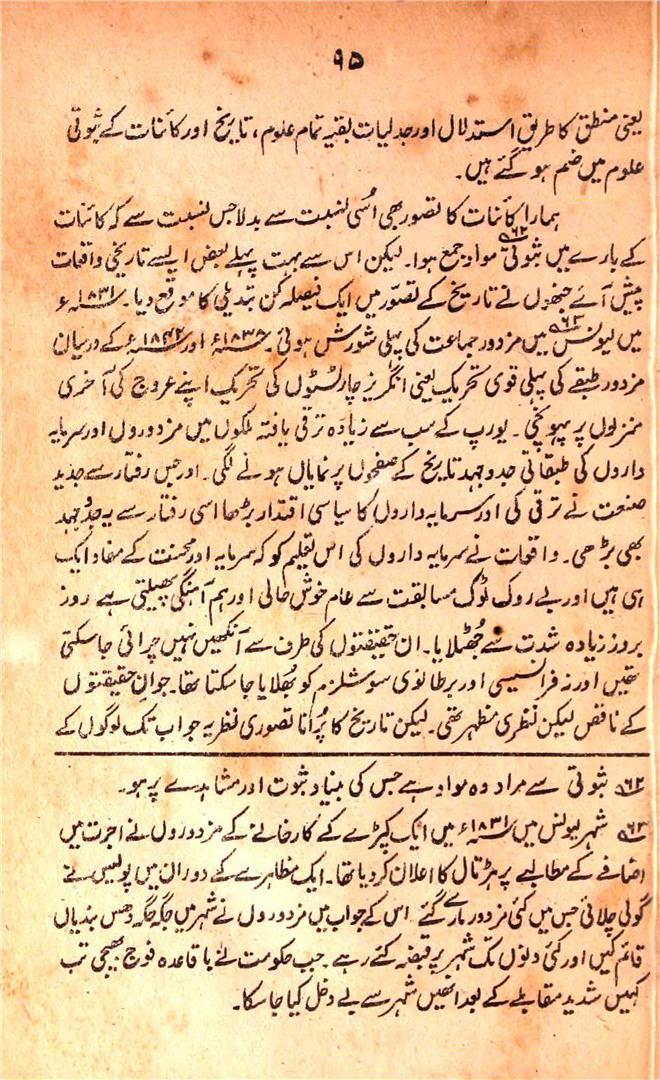 ۹۵
یعنی منطق کا طریقِ استدلال اور جدلیات بقیہ تمام علوم، تاریخ اور کائنات کے ثبوتی
علوم میں ضم ہو گئے ہیں۔
ہمارا کائنات کا تصور بھی اُسی نسبت سے بدلا جس نسبت سے کہ کائنات
کے بارے میں ثبوتی ۶۲ مواد جمع ہوا۔ لیکن اس سے بہت پہلے بعض ایسے تاریخی واقعات
پیش آئے جنھوں نے تاریخ کے تصوّر میں ایک فیصلہ کن تبدیلی کا موقع دیا۔ ۱۸۳۱ء
میں لیونس ۶۳ میں مزدور جماعت کی پہلی شورش ہوئی۔ ۱۸۳۸ء اور ۱۸۴۲ء کے درمیان
مزدور طبقے کی پہلی قومی تحریک یعنی انگریز چارٹسٹوں کی تحریک اپنے عروج کی آخری
منزلوں پر پہونچی۔ یورپ کے سب سے زیادہ ترقی یافتہ ملکوں میں مزدوروں اور سرمایہ
داروں کی طبقاتی جدوجہد تاریخ کے صفحوں پر نمایاں ہونے لگی۔ اور جس رفتار سے جدید
صنعت نے ترقی کی اور سرمایہ داروں کا سیاسی اقتدار بڑھا اسی رفتار سے یہ جدوجہد
بھی بڑھی۔ واقعات نے سرمایہ داروں کی اس تعلیم کو کہ سرمایہ اور محنت کے مفاد ایک
ہی ہیں اور بے روک ٹوک مسابقت سے عام خوش حالی اور ہم آہنگی پھیلتی ہے روز
بروز زیادہ شدت سے جُھٹلایا۔ ان حقیقتوں کی طرف سے آنکھیں نہیں چرائی جا سکتی
تھیں اور نہ فرانسیسی اور برطانوی سوشلزم کو بُھلایا جا سکتا تھا۔ جو ان حقیقتوں
کے ناقص لیکن نظری مظہر تھی۔ لیکن تاریخ کا پُرانا تصوری نظریہ جو اب تک لوگوں کے
۶۲ ثبوتی سے مراد وہ مواد ہے جس کی بنیاد ثبوت اور مشاہدے پر ہو۔
۶۳ شہر لیونس میں ۱۸۳۱ء میں ایک کپڑے کے کارخانے کے مزدوروں نے اجرت میں
اضافے کے مطالبے پر ہڑتال کا اعلان کر دیا تھا۔ ایک مظاہرے کے دوران میں پولیس نے
گولی چلائی جس میں کئی مزدور مارے گئے اس کے جواب میں مزدوروں نے شہر میں جگہ جگہ دھس بندیاں
قائم کیں اور کئی دنوں تک شہر پر قبضہ کئے رہے۔ جب حکومت نے باقاعدہ فوج بھیجی تب
کہیں شدید مقابلے کے بعد انھیں شہر سے بے دخل کیا جا سکا۔